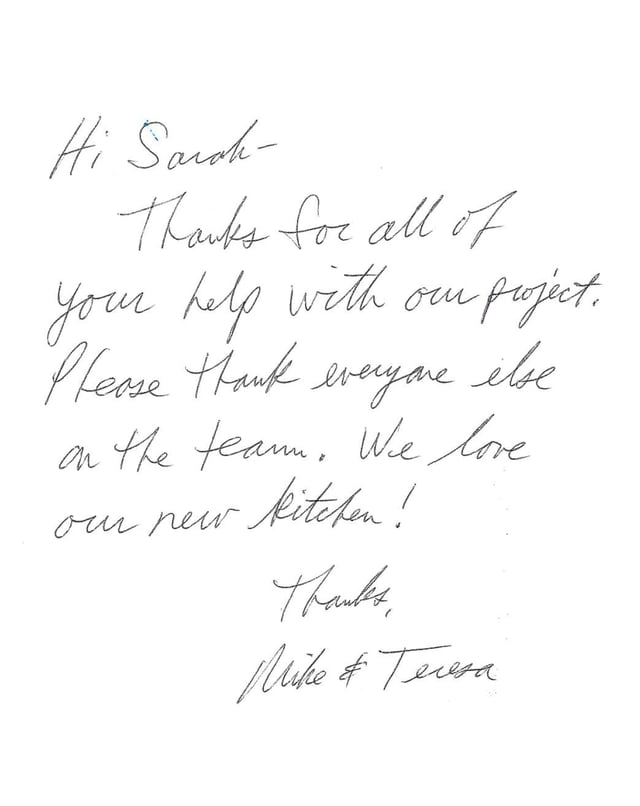 Hi Sarah-
Thanks for all of
your help with our project.
Please thank everyone else
on the team. We love
our new kitchen!
Thanks,
Mike & Teresa